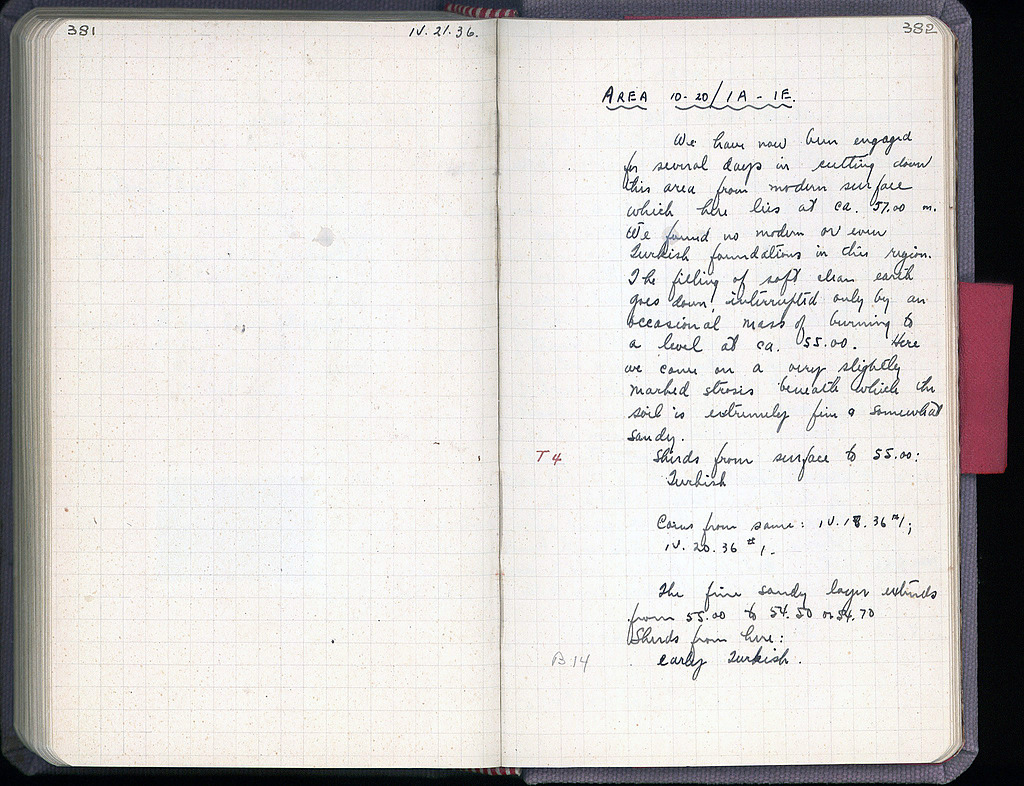 381
IV. 21. 36.
382
AREA 10-20/1A - 1E.
We have now been engaged
for several days in cutting down
this area from modern surface
which here lies at ca. 57.00 m.
We found no modern or even
Turkish foundations in this region.
The filling of soft clean earth
goes down, interrupted only by an
occasional mass of burning to
a level at ca. 55.00. Here
we come on a very slightly
marked strosis beneath which the
soil is extremely fine & somewhat
sandy.
T 4
Sherds from surface to 55.00:
Turkish
Coins from same: IV.18.36 #1;
IV.20.36 #1.
The fine sandy layer extends
from 55.00 to 54.50 or 54.70
Sherds from here:
B 14
early Turkish.